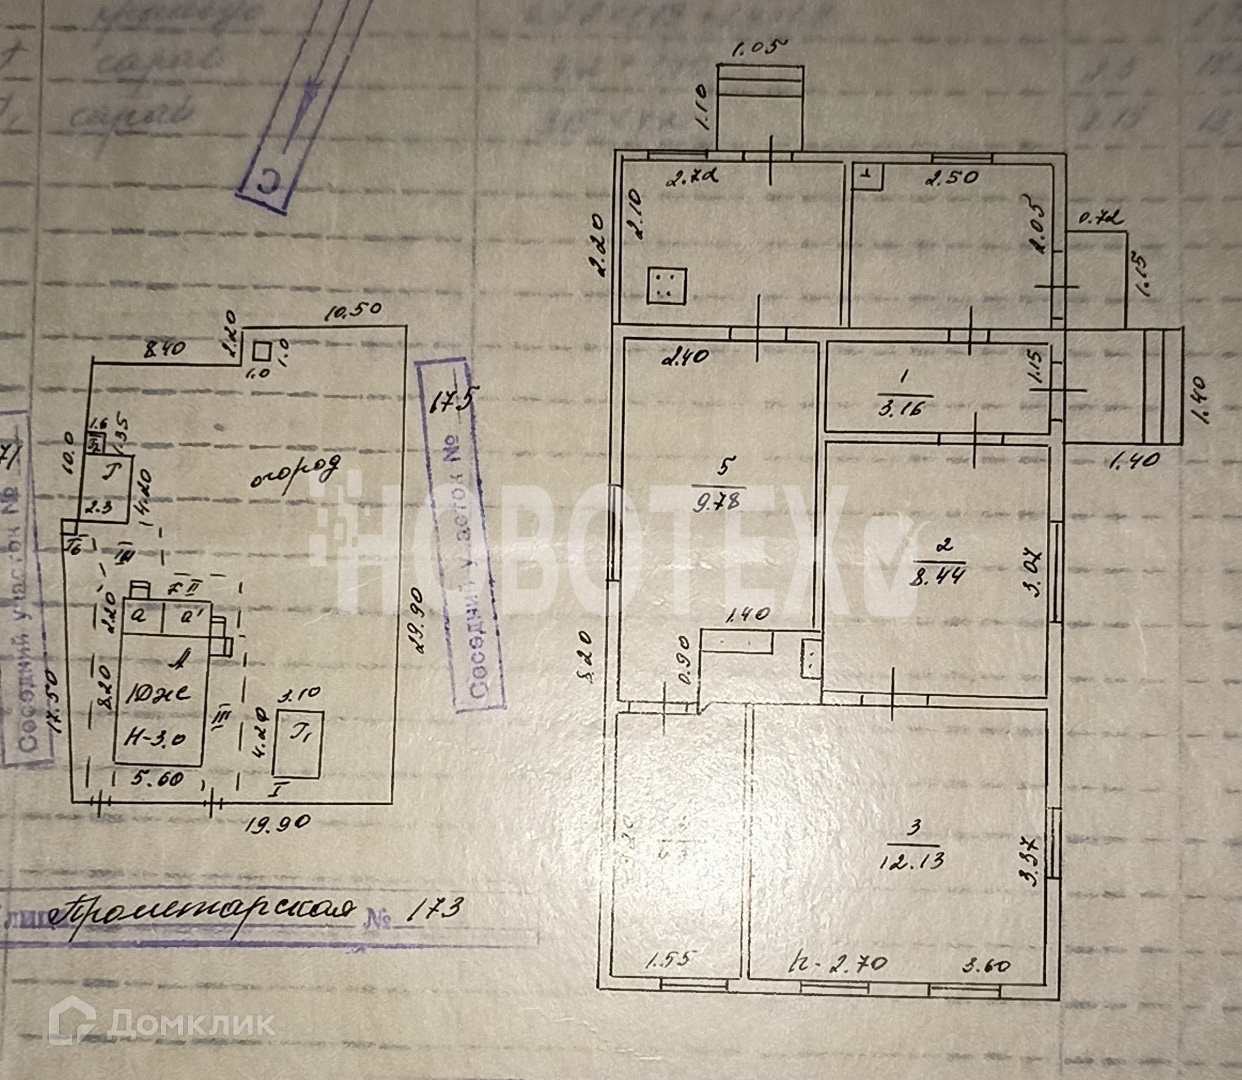 сарай
сарай
С
1.05
1.10
2.72
2.50
2.10
2.20
2.05
0.72
1.15
2.40
1
3.16
1.15
1.40
1.40
5
9.78
2
8.44
3.07
1.40
0.90
8.20
3
12.13
3.37
1.55
h-2.70
3.60
10.50
2.20
8.40
1.0
1.0
Соседний участок №
175
1.6
1.35
10.0
Г
4.20
2.3
огород
Г6
III
II
2.20
а
а1
А
1Дже
8.20
Н-3.0
III
5.60
3.10
4.20
Г1
I
29.90
17.50
Соседний участок №
171
19.90
Пролетарская № 173
НОВОТЕХ
Домклик